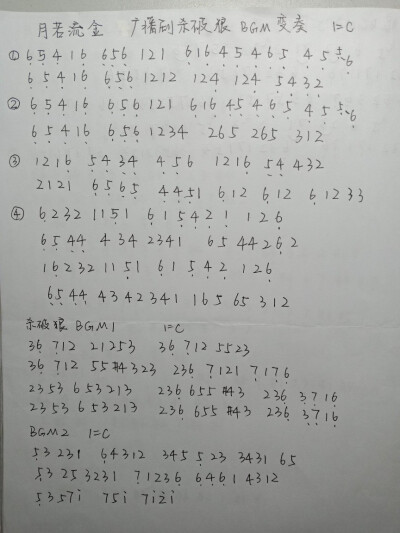 月若流金 广播剧杀破狼 BGM 变奏 1=C
① 65416 656 121 616 45465 45 5 6
65416 656 1212 124 124 5432
② 65416 656 121 616 45465 45 5 6
65416 656 1234 265 265 312
③ 1216 5434 456 1216 54 432
2121 6565 4451 612 612 61233
④ 6232 1151 615421 126
6544 434 2341 65 44262
16232 1151 61542 126
6544 4342341 165 65 312
杀破狼 BGM1 1=C
36 712 21253 36 712 5523
36 712 55#4323 236 7121 7176
2353 653213 236 655 #43 236 3716
2353 653213 236 655 #43 236 3716
BGM2 1=C
53 231 64312 345 523 3431 65
53 253231 71236 6461 4312
5357i 75i 7i2i